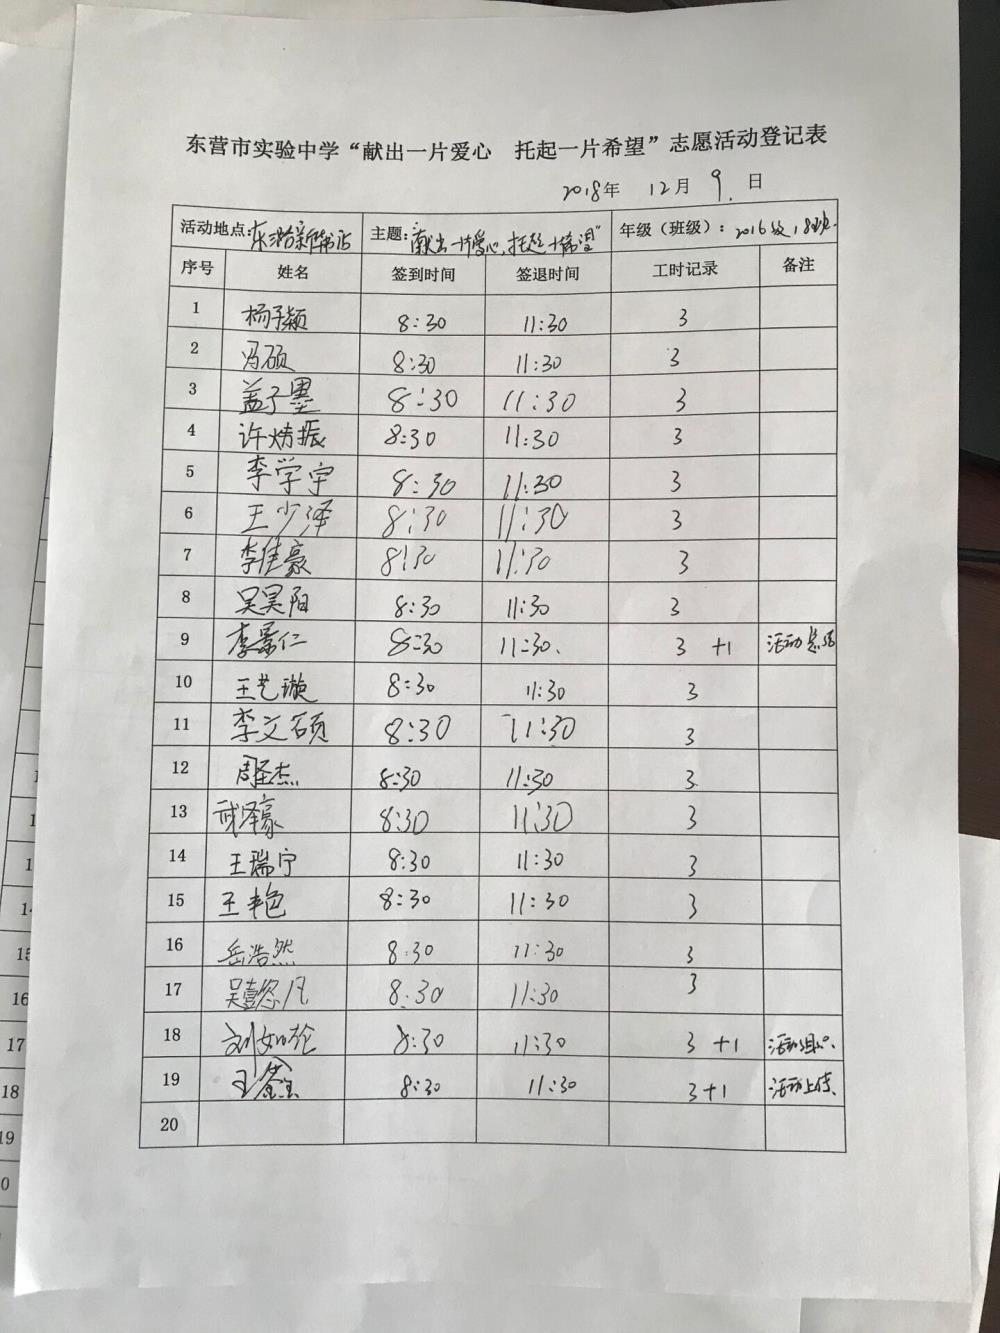 东营市实验中学“献出一片爱心 托起一片希望”志愿活动登记表
2018年 12月 9. 日
活动地点: 东 新 书店 主题: “献出一片爱心,托起一片希望” 年级（班级）: 2016级18班.
序号 姓名 签到时间 签退时间 工时记录 备注
1 杨子颖 8:30 11:30 3
2 冯硕 8:30 11:30 3
3 盖子墨 8:30 11:30 3
4 许炜振 8:30 11:30 3
5 李学宇 8:30 11:30 3
6 王少泽 8:30 11:30 3
7 李佳豪 8:30 11:30 3
8 吴昊阳 8:30 11:30 3
9 李景仁 8:30 11:30. 3 +1 活动总结
10 王艺璇 8:30 11:30 3
11 李文硕 8:30 11:30 3
12 周圣杰 8:30 11:30 3
13 武泽豪 8:30 11:30 3
14 王瑞宁 8:30 11:30 3
15 王艳 8:30 11:30 3
16 岳浩然 8:30 11:30 3
17 吴 凡 8:30 11:30 3
18 刘如伦 8:30 11:30 3 +1 活动组织
19 王 8:30 11:30 3+1 活动上传
20
1
1
1
14
15
16
17
18
19
0